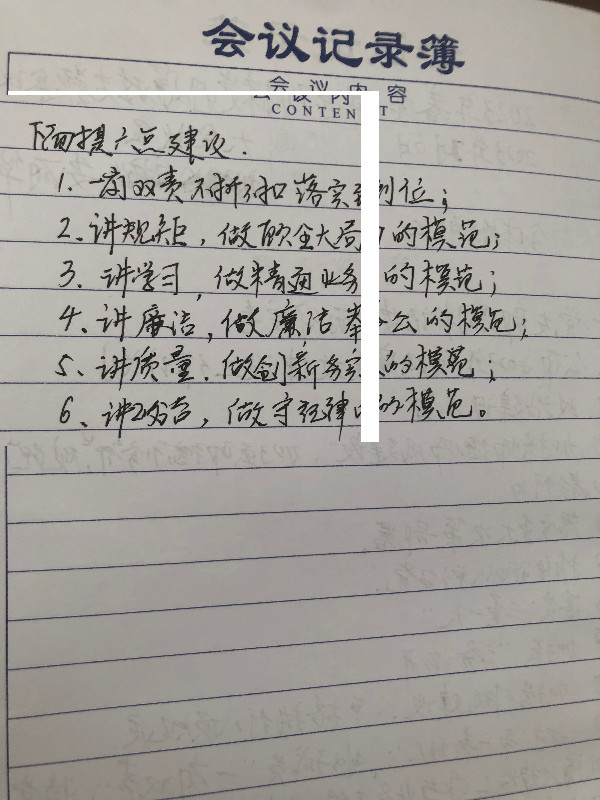 会议记录簿
会议内容
CONTENT
下面提六点建议.
1、一岗双责不折不扣落实到位；
2、讲规矩，做顾全大局的模范；
3、讲学习，做精通业务的模范；
4、讲廉洁，做廉洁奉公的模范；
5、讲质量.做创新务实的模范；
6、讲政治，做守纪律的模范。